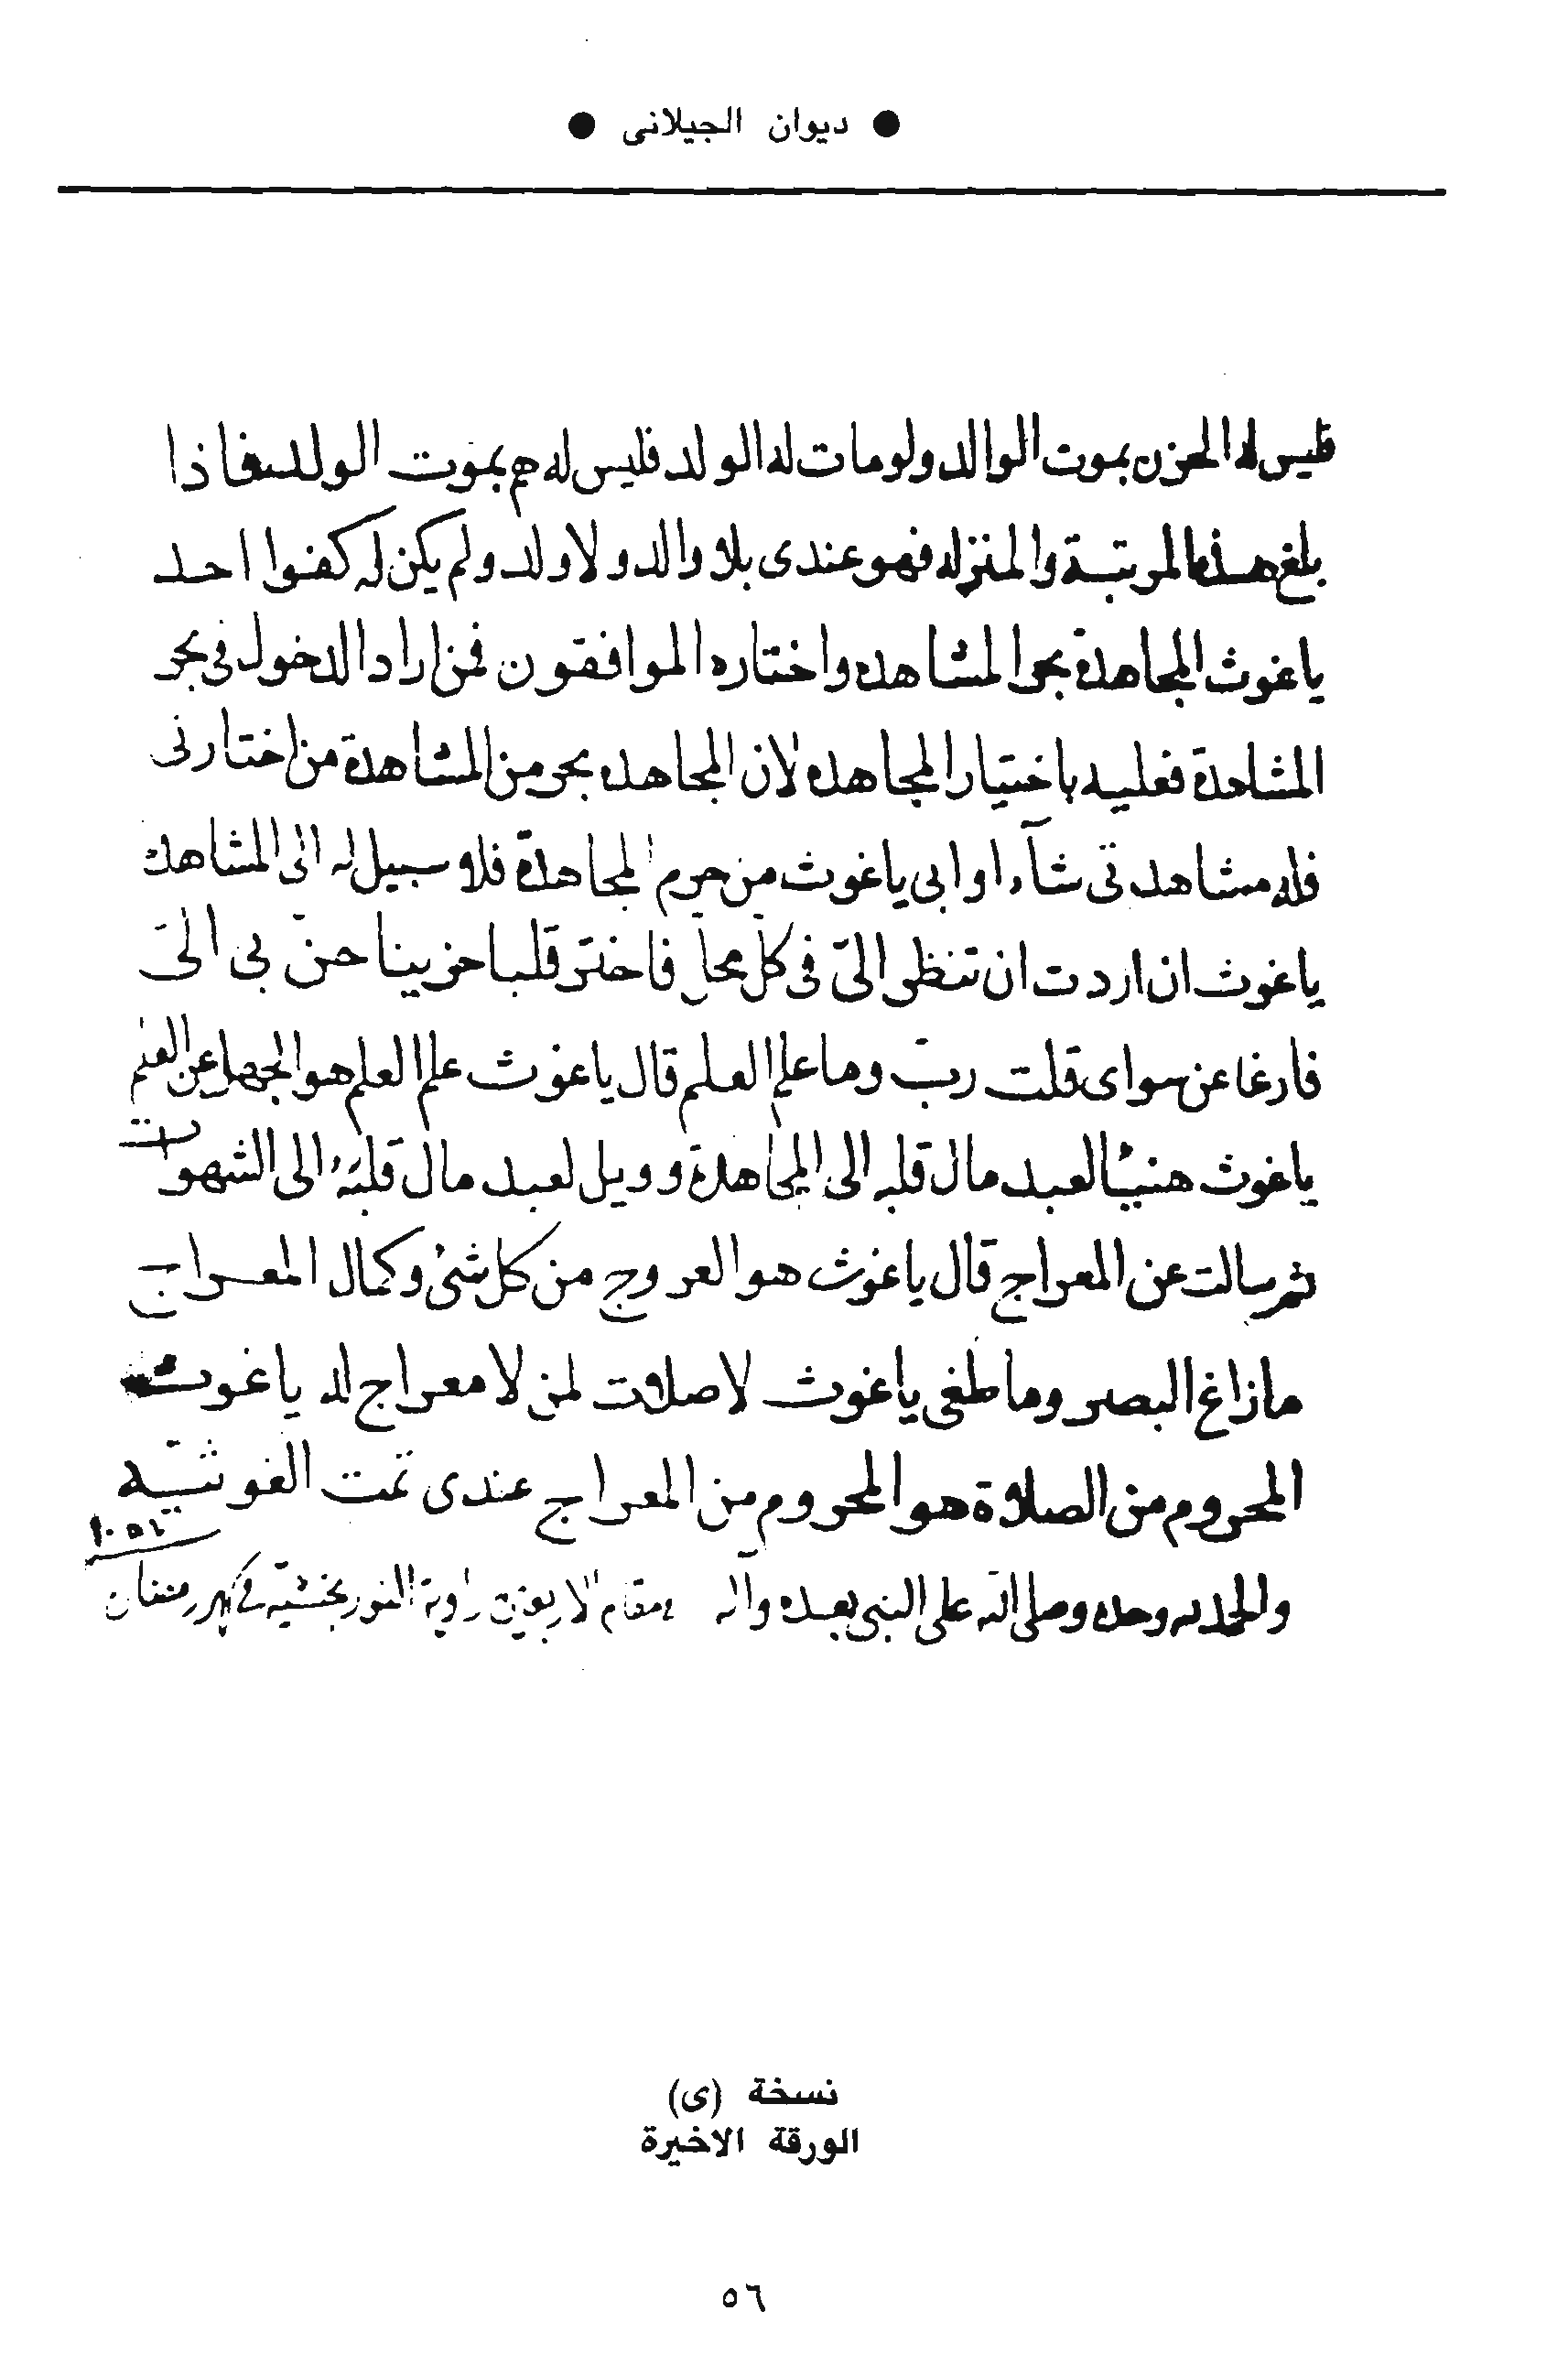 ● ديوان الجيلانى ●
فليس له الحزن بموت الوالد ولو مات له الولد فليس له هم بموت الولد فاذا
بلغ هذه المرتبة والمنزله فهو عندى بلا والد ولا ولد ولم يكن له كفوا احد
ياغوث المجاهدة بحر المشاهده واختاره الموافقون فمن اراد الدخول فى بحر
المشاهدة فعليه باختيار المجاهده لان المجاهده بحر من المشاهدة من اختارنى
فله مشاهدتى شآء او ابى ياغوث من حرم المجاهدة فلا سبيل له الى المشاهدة
ياغوث ان اردت ان تنظر الىّ فى كل محل فاختر قلبا حزينا حنّ بى الىّ
فارغا عن سواى قلت ربّ وما علم العلم قال ياغوث علم العلم هو الجهل عن العلم
ياغوث هنيئا لعبد مال قلبه الى المجاهدة وويل لعبد مال قلبه الى الشهوات
ثم سالت عن المعراج قال ياغوث هو العروج من كل شئ وكمال المعراج
مازاغ البصر وما طغى ياغوث لا صلاوت لمن لا معراج له ياغوث
المحروم من الصلاة هو المحروم من المعراج عندى تمت الغوثيّه
والحمد لله وحده وصلى الله على النبى بعده وآله فى مقام الاربعين زاوية النوربخشيّه فى شهر رمضان
١٠٥٤
نسخة (ى)
الورقة الاخيرة
٥٦